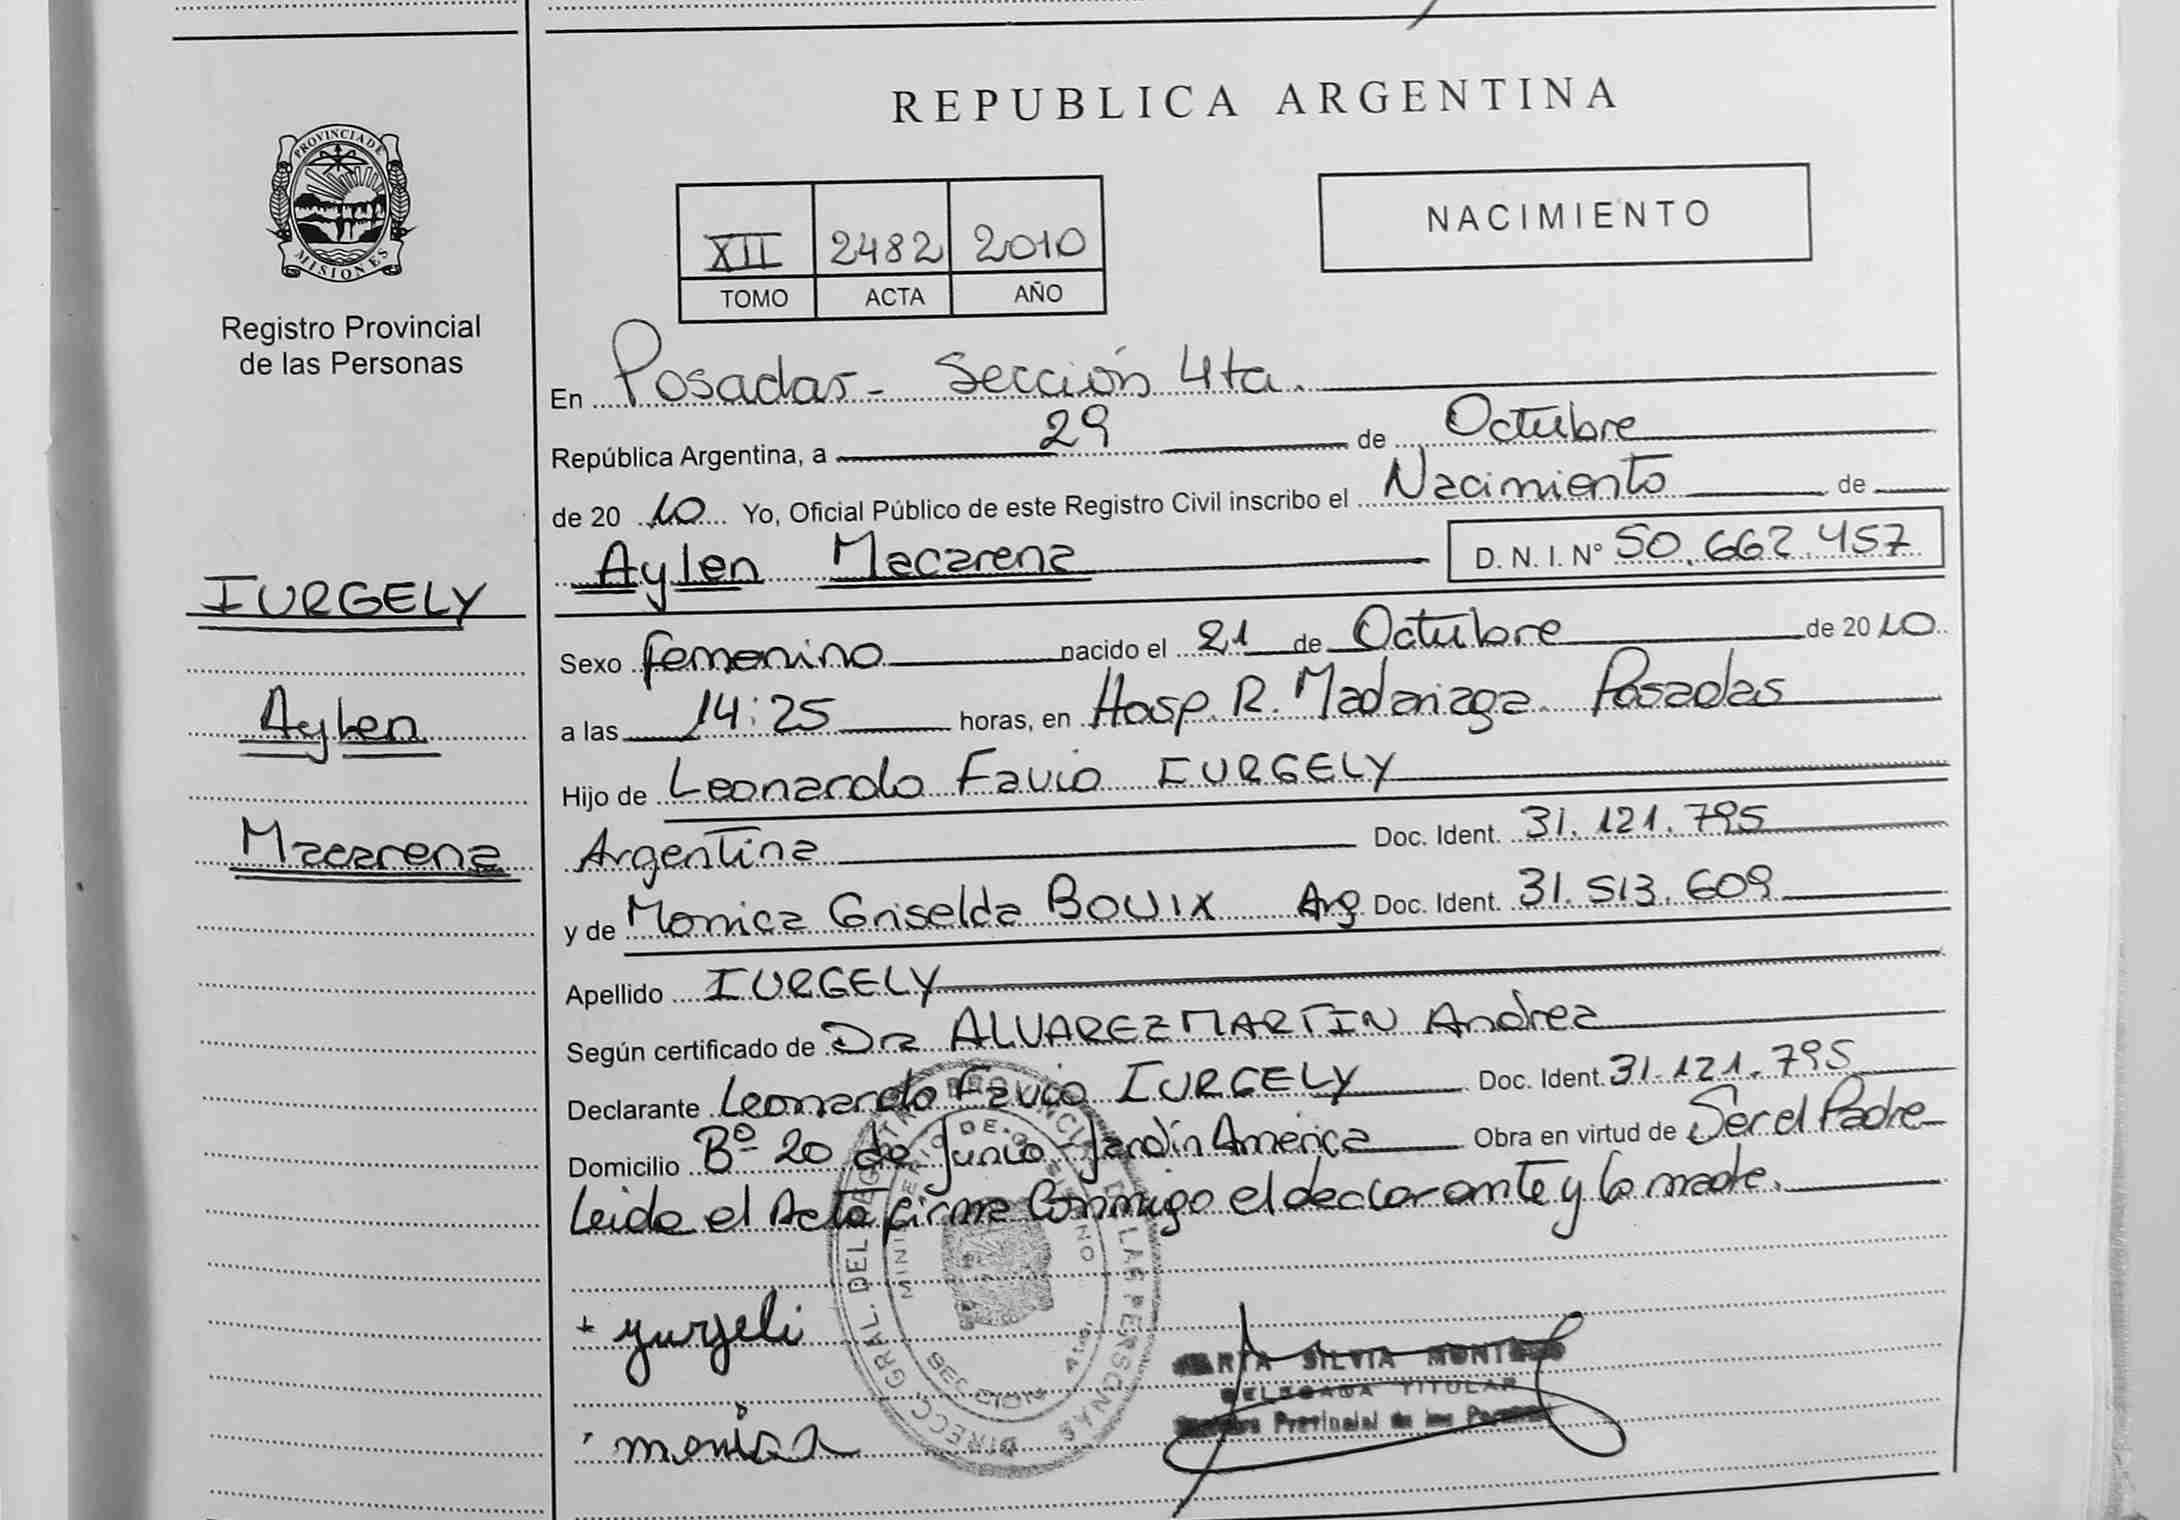 REPUBLICA ARGENTINA
PROVINCIA DE
MISIONES
Registro Provincial
de las Personas
XII 2482 2010
TOMO ACTA AÑO
NACIMIENTO
En Posadas - Sección 4ta.
República Argentina, a 29 de Octubre
de 20 10 Yo, Oficial Público de este Registro Civil inscribo el Nacimiento de
Aylen Macarena D. N. I. N° 50.662.457
IURGELY
Aylen
Macarena
Sexo femenino nacido el 21 de Octubre de 20 10
a las 14:25 horas, en Hosp. R. Madariaga. Posadas
Hijo de Leonardo Favio IURGELY
Argentina Doc. Ident. 31.121.795
y de Monica Griselda BOUIX Arg Doc. Ident. 31.513.609
Apellido IURGELY
Según certificado de Dra ALVAREZ MARTIN Andrea
Declarante Leonardo Favio IURGELY Doc. Ident. 31.121.795
Domicilio Bº 20 de Junio - Jardin America Obra en virtud de Ser el Padre
Leida el Acta firma Conmigo el declarante y la madre.
+ yurgeli
monica
DIRECC. GRAL. DEL REGISTRO PROVINCIAL DE LAS PERSONAS
MINISTERIO DE GOBIERNO
SILVIA
DELEGADA TITULAR
Provincial de las